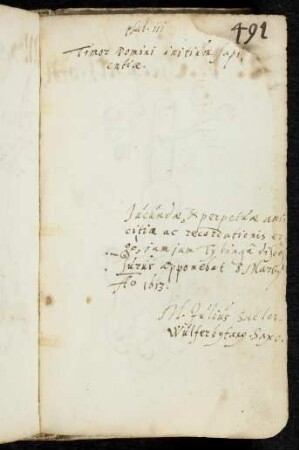 psal. 111
491
Timor Domini initium sapi
entiæ.
Jucundæ & perpetuæ ami
citiæ ac recordationis er
go, jamjam Tubinga disces
surus apponebat 8 Martij
Aō 1613.
M. Julius
Wulferbytano-Saxo.